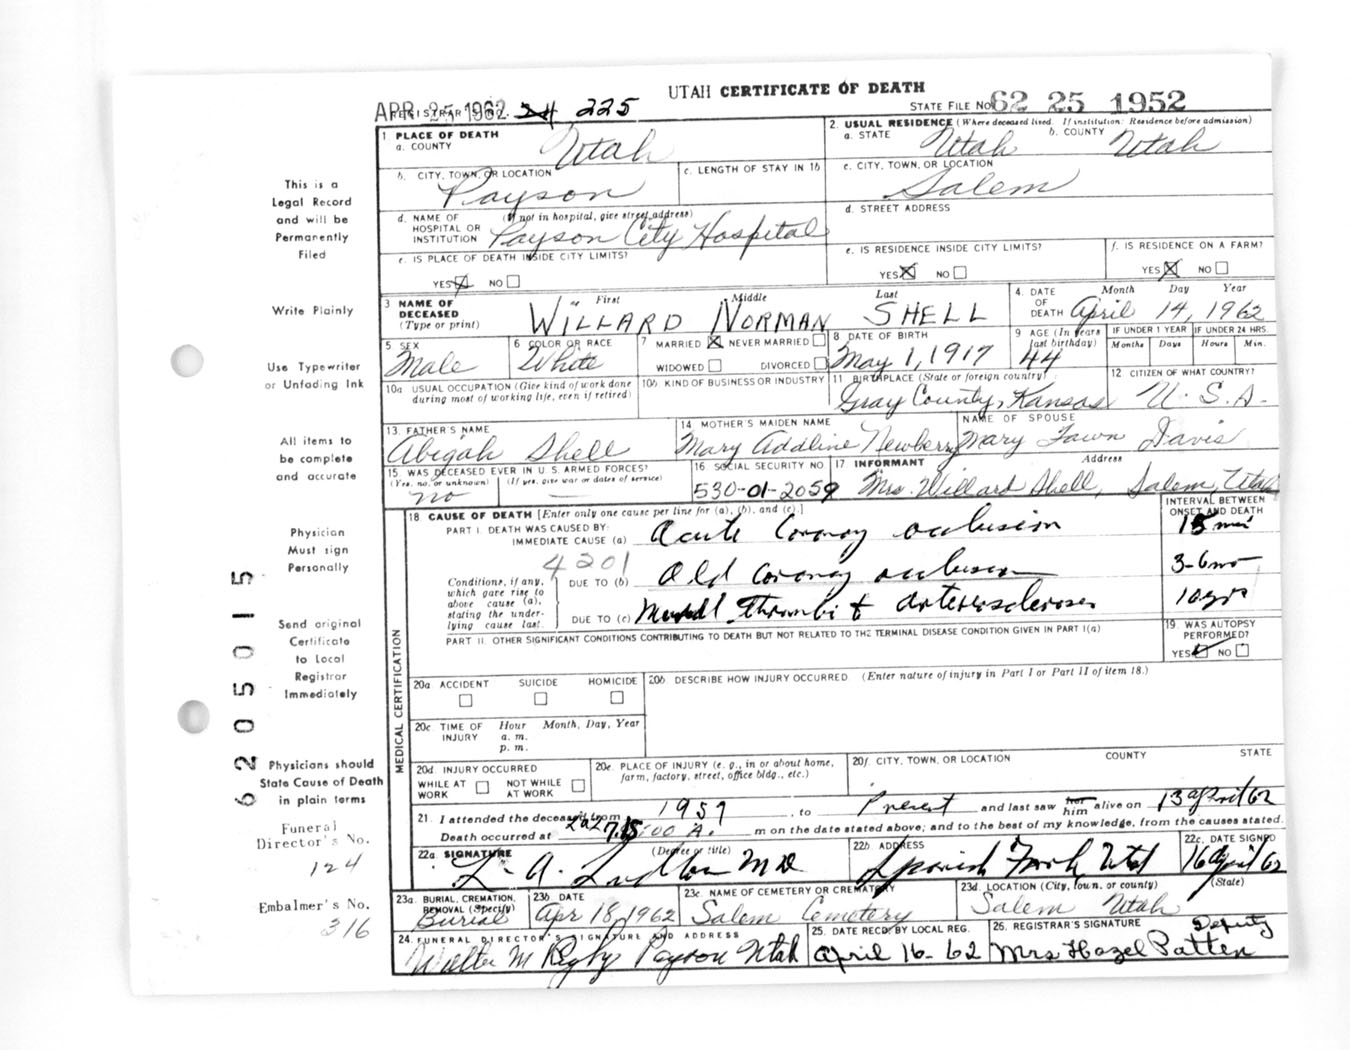 UTAH CERTIFICATE OF DEATH
APR 25 1962 REGISTRAR'S NO. 225
STATE FILE NO. 62 25 1952
1. PLACE OF DEATH
a. COUNTY Utah
2. USUAL RESIDENCE (Where deceased lived. If institution: Residence before admission)
a. STATE Utah b. COUNTY Utah
b. CITY, TOWN, OR LOCATION Payson
c. LENGTH OF STAY IN 1b
c. CITY, TOWN, OR LOCATION Salem
d. NAME OF (If not in hospital, give street address)
HOSPITAL OR
INSTITUTION Payson City Hospital
d. STREET ADDRESS
e. IS PLACE OF DEATH INSIDE CITY LIMITS?
YES NO
e. IS RESIDENCE INSIDE CITY LIMITS?
YES NO
f. IS RESIDENCE ON A FARM?
YES NO
3 NAME OF DECEASED (Type or print)
First Middle Last
WILLARD NORMAN SHELL
4. DATE OF DEATH
Month Day Year
April 14, 1962
5 SEX Male
6 COLOR OR RACE White
7 MARRIED NEVER MARRIED
WIDOWED DIVORCED
8 DATE OF BIRTH May 1, 1917
9 AGE (In years last birthday) 44
IF UNDER 1 YEAR Months Days
IF UNDER 24 HRS. Hours Min.
10a USUAL OCCUPATION (Give kind of work done
during most of working life, even if retired)
10b. KIND OF BUSINESS OR INDUSTRY
11 BIRTHPLACE (State or foreign country) Gray County, Kansas
12 CITIZEN OF WHAT COUNTRY? U. S. A.
13. FATHER'S NAME Abigah Shell
14 MOTHER'S MAIDEN NAME Mary Addline Newberry
NAME OF SPOUSE Mary Fawn Davis
15. WAS DECEASED EVER IN U.S. ARMED FORCES?
(Yes, no, or unknown) (If yes, give war or dates of service)
no —
16 SOCIAL SECURITY NO 530-01-2059
17 INFORMANT Address
Mrs. Willard Shell, Salem, Utah
18 CAUSE OF DEATH [Enter only one cause per line for (a), (b), and (c).]
INTERVAL BETWEEN ONSET AND DEATH
PART I. DEATH WAS CAUSED BY:
IMMEDIATE CAUSE (a) Acute Coronary occlusion 15 min
4201
Conditions, if any,
which gave rise to
above cause (a),
stating the under-
lying cause last.
DUE TO (b) Old coronary occlusion 3-6 mo
DUE TO (c) Mural thrombi & Arteriosclerosis 10 yrs
PART II. OTHER SIGNIFICANT CONDITIONS CONTRIBUTING TO DEATH BUT NOT RELATED TO THE TERMINAL DISEASE CONDITION GIVEN IN PART I(a)
19. WAS AUTOPSY PERFORMED?
YES NO
MEDICAL CERTIFICATION
20a ACCIDENT SUICIDE HOMICIDE
20b. DESCRIBE HOW INJURY OCCURRED. (Enter nature of injury in Part I or Part II of item 18.)
20c TIME OF INJURY Hour Month, Day, Year
a. m.
p. m.
20d. INJURY OCCURRED
WHILE AT WORK NOT WHILE AT WORK
20e. PLACE OF INJURY (e. g., in or about home,
farm, factory, street, office bldg., etc.)
20f. CITY, TOWN, OR LOCATION COUNTY STATE
21. I attended the deceased from 1957, to Present and last saw her him alive on 13 April 62
Death occurred at 7:15 A. m on the date stated above; and to the best of my knowledge, from the causes stated.
22a. SIGNATURE (Degree or title) MD
22b. ADDRESS Spanish Fork, Utah
22c. DATE SIGNED 16 April 62
23a. BURIAL, CREMATION, REMOVAL (Specify) Burial
23b. DATE Apr 18, 1962
23c. NAME OF CEMETERY OR CREMATORY Salem Cemetery
23d. LOCATION (City, town, or county) (State)
Salem Utah
24. FUNERAL DIRECTOR'S SIGNATURE AND ADDRESS
Walter M Rigby Payson Utah
25. DATE REC'D. BY LOCAL REG. April 16-62
26. REGISTRAR'S SIGNATURE Deputy
Mrs Hazel Patten
This is a
Legal Record
and will be
Permanently
Filed
Write Plainly
Use Typewriter
or Unfading Ink
All items to
be complete
and accurate
Physician
Must sign
Personally
Send original
Certificate
to Local
Registrar
Immediately
Physicians should
State Cause of Death
in plain terms
Funeral
Director's No.
124
Embalmer's No.
316
6205015